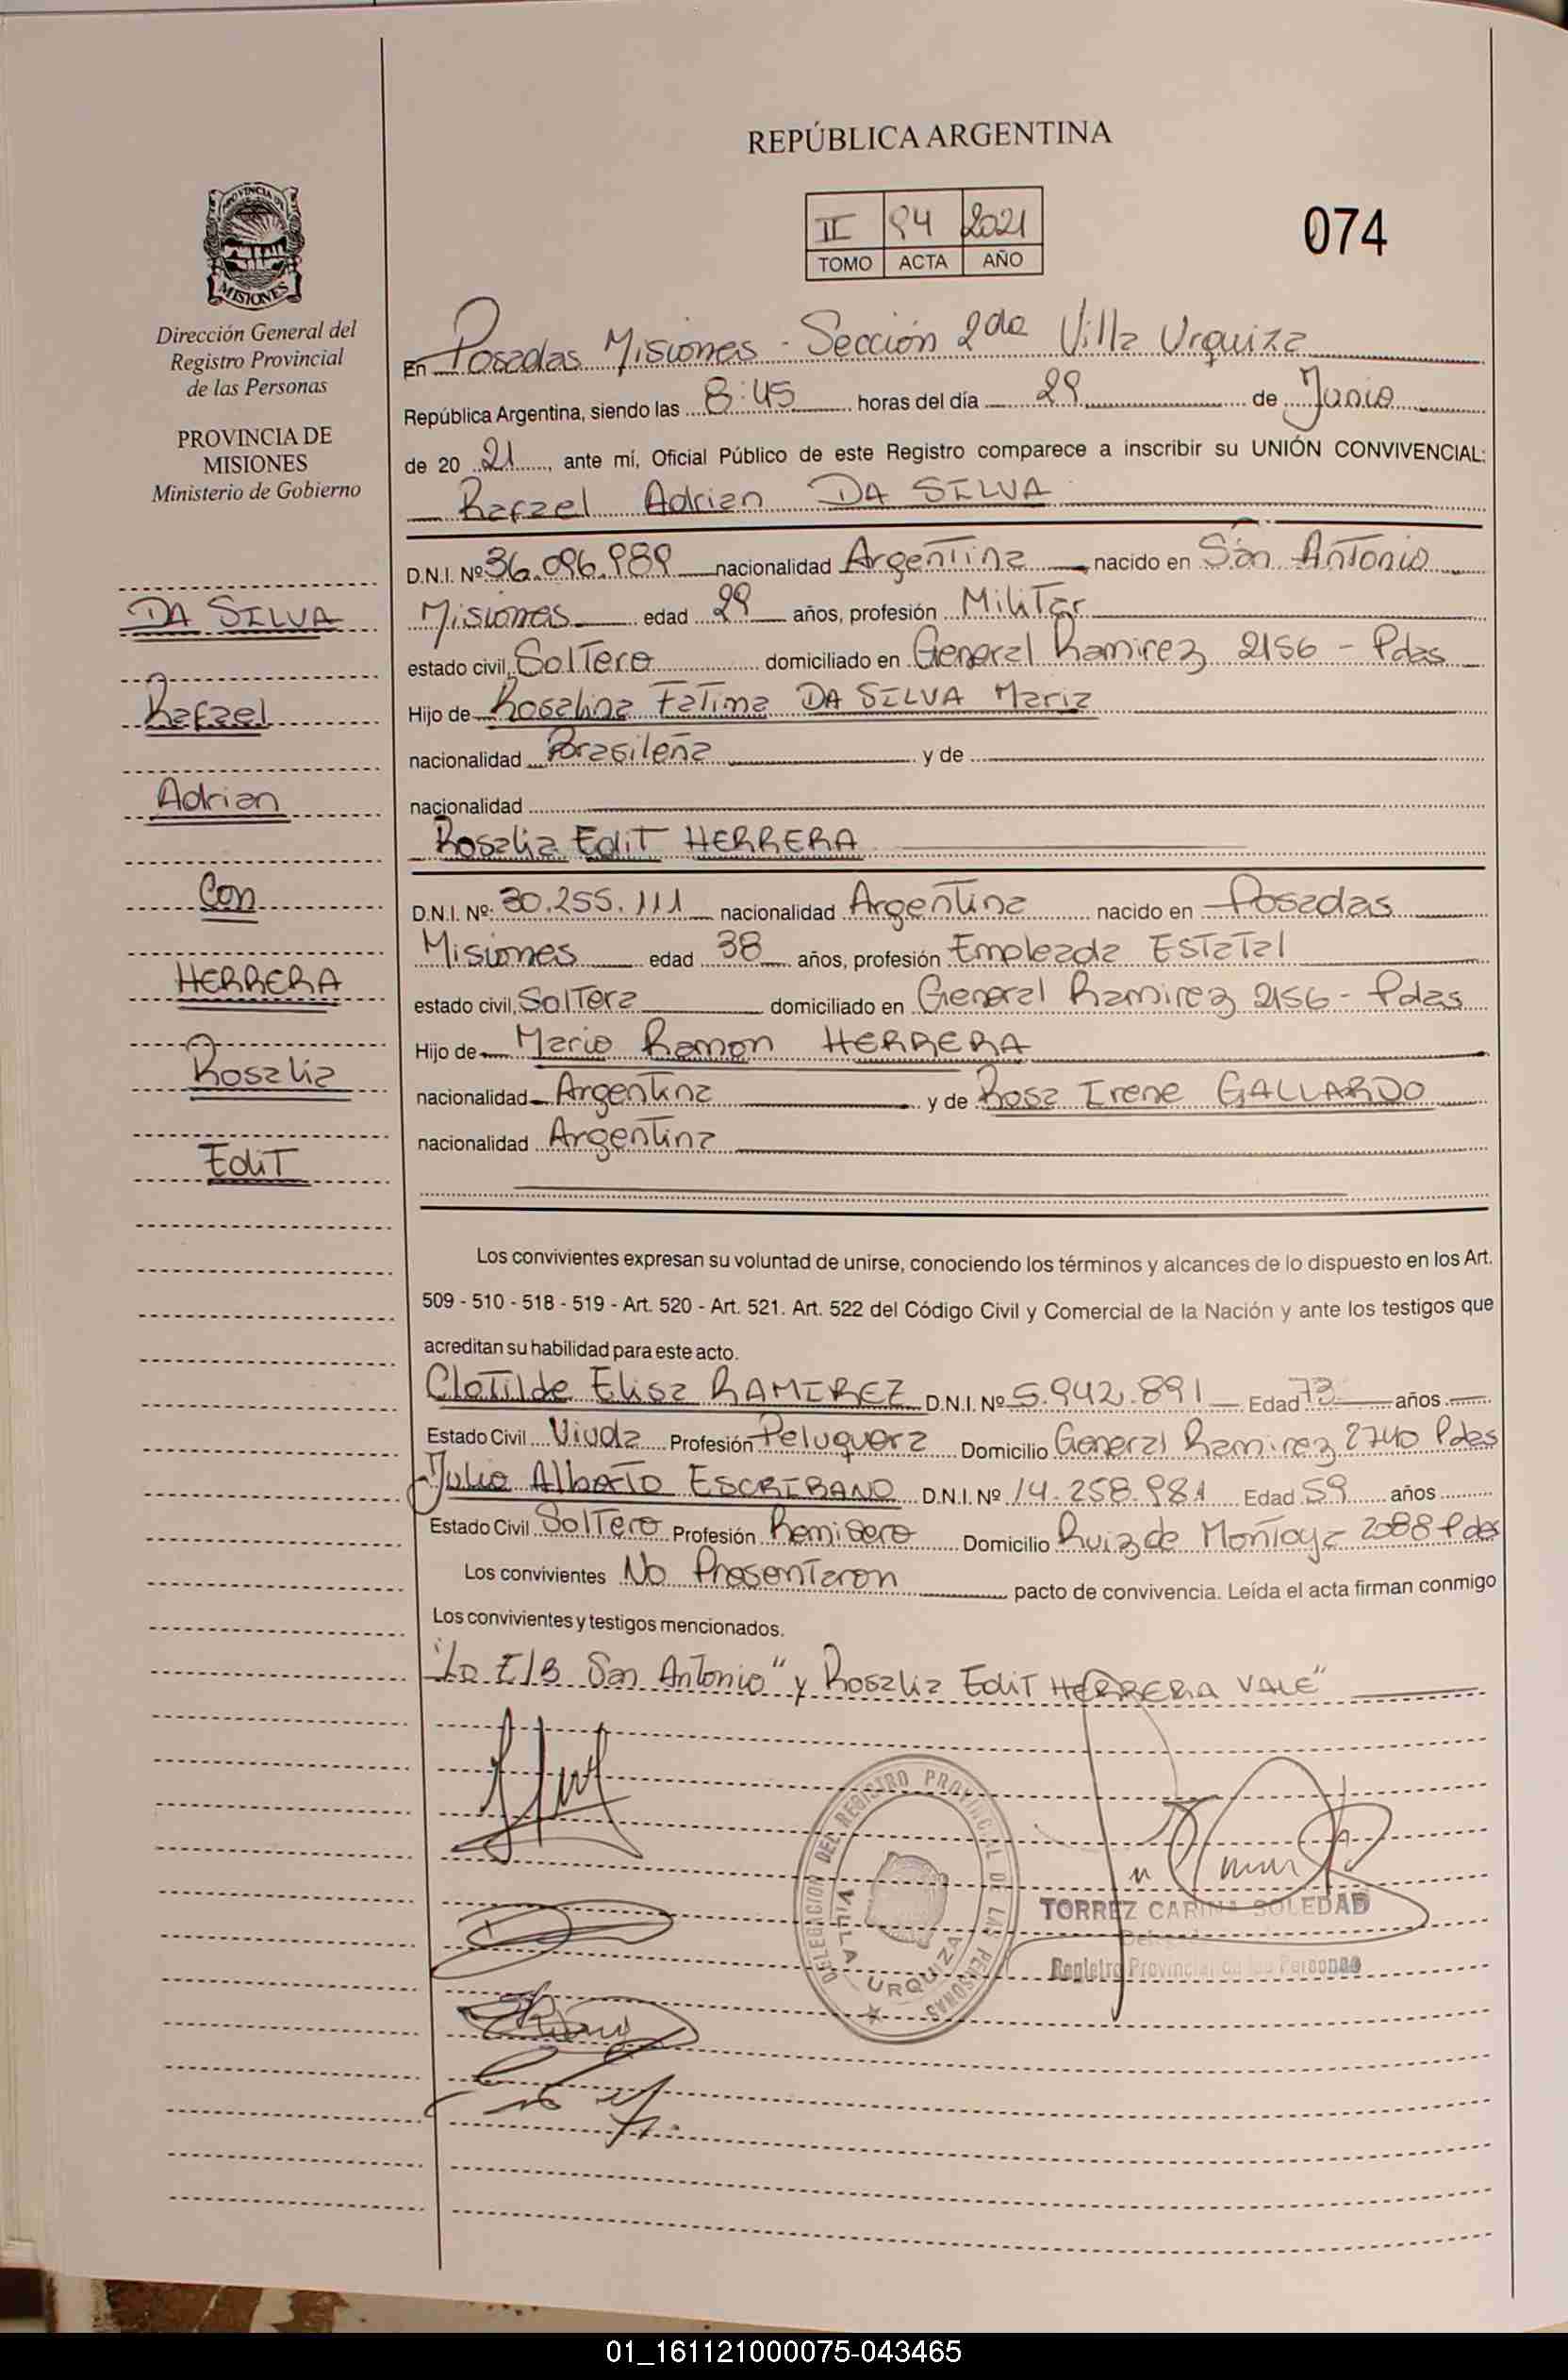 REPÚBLICA ARGENTINA
II 94 2021
TOMO ACTA AÑO
074
PROVINCIA DE
MISIONES
Dirección General del
Registro Provincial
de las Personas
PROVINCIA DE
MISIONES
Ministerio de Gobierno
DA SILVA
Rafael
Adrian
Con
HERRERA
Rosalia
Edit
En Posadas Misiones - Sección 2da Villa Urquiza
República Argentina, siendo las 8:45 horas del día 29 de Junio
de 20 21, ante mí, Oficial Público de este Registro comparece a inscribir su UNIÓN CONVIVENCIAL:
Rafael Adrian DA SILVA
D.N.I. Nº 36.096.989 nacionalidad Argentina nacido en San Antonio
Misiones edad 29 años, profesión Militar
estado civil, Soltero domiciliado en General Ramirez 2156 - Pdas
Hijo de Rosalina Fatima DA SILVA Maria
nacionalidad Brasileña y de
nacionalidad
Rosalia Edit HERRERA
D.N.I. Nº: 30.255.111 nacionalidad Argentina nacido en Posadas
Misiones edad 38 años, profesión Empleada Estatal
estado civil, Soltera domiciliado en General Ramirez 2156 - Pdas
Hijo de Mario Ramon HERRERA
nacionalidad Argentina y de Rosa Irene GALLARDO
nacionalidad Argentina
Los convivientes expresan su voluntad de unirse, conociendo los términos y alcances de lo dispuesto en los Art.
509 - 510 - 518 - 519 - Art. 520 - Art. 521. Art. 522 del Código Civil y Comercial de la Nación y ante los testigos que
acreditan su habilidad para este acto.
Clotilde Elisa RAMIREZ D.N.I. Nº 5.942.891 Edad 73 años
Estado Civil Viuda Profesión Peluquera Domicilio General Ramirez 2740 Pdas
Julio Alberto ESCRIBANO D.N.I. Nº 14.258.981 Edad 59 años
Estado Civil Soltero Profesión Remisero Domicilio Ruiz de Montoya 2088 Pdas
Los convivientes No Presentaron pacto de convivencia. Leída el acta firman conmigo
Los convivientes y testigos mencionados.
E/B San Antonio" y Rosalia Edit HERRERA VALE"
DELEGACION DEL REGISTRO PROVINCIAL DE LAS PERSONAS
VILLA URQUIZA
TORREZ CARINA SOLEDAD
Registro Provincial de las Personas
01_161121000075-043465